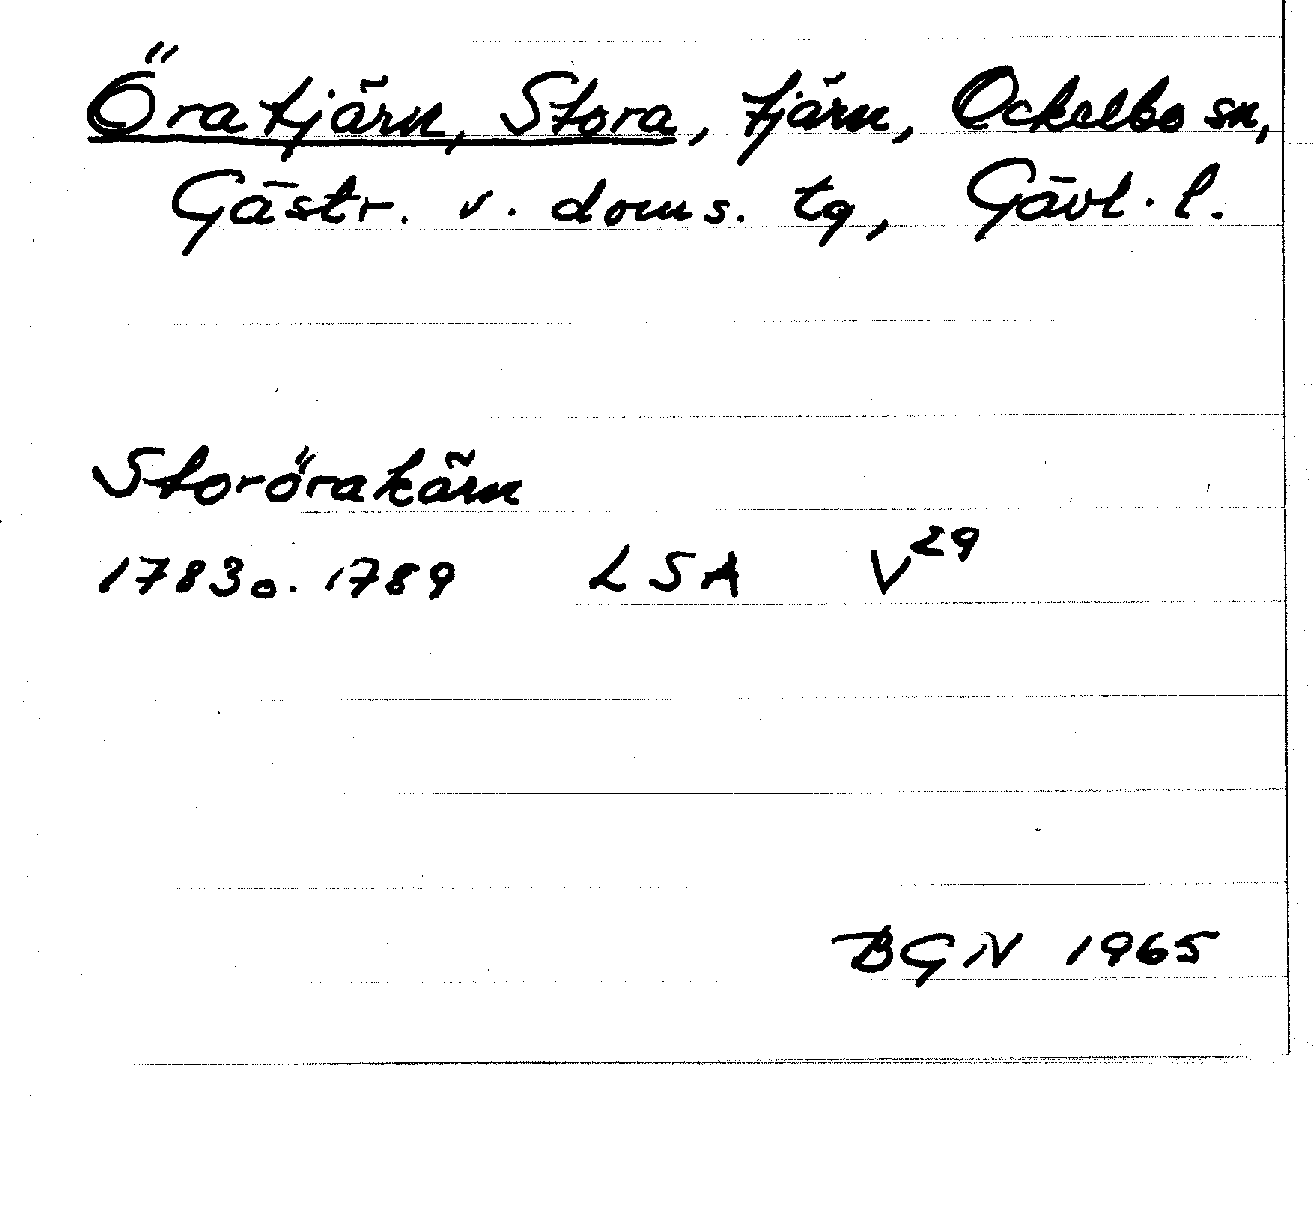 Öratjärn, Stora, tjärn, Ockelbo sn,
Gästr. v. doms. tg, Gävl. l.
Storörakärn
1783 o. 1789 LSA V29
BGN 1965